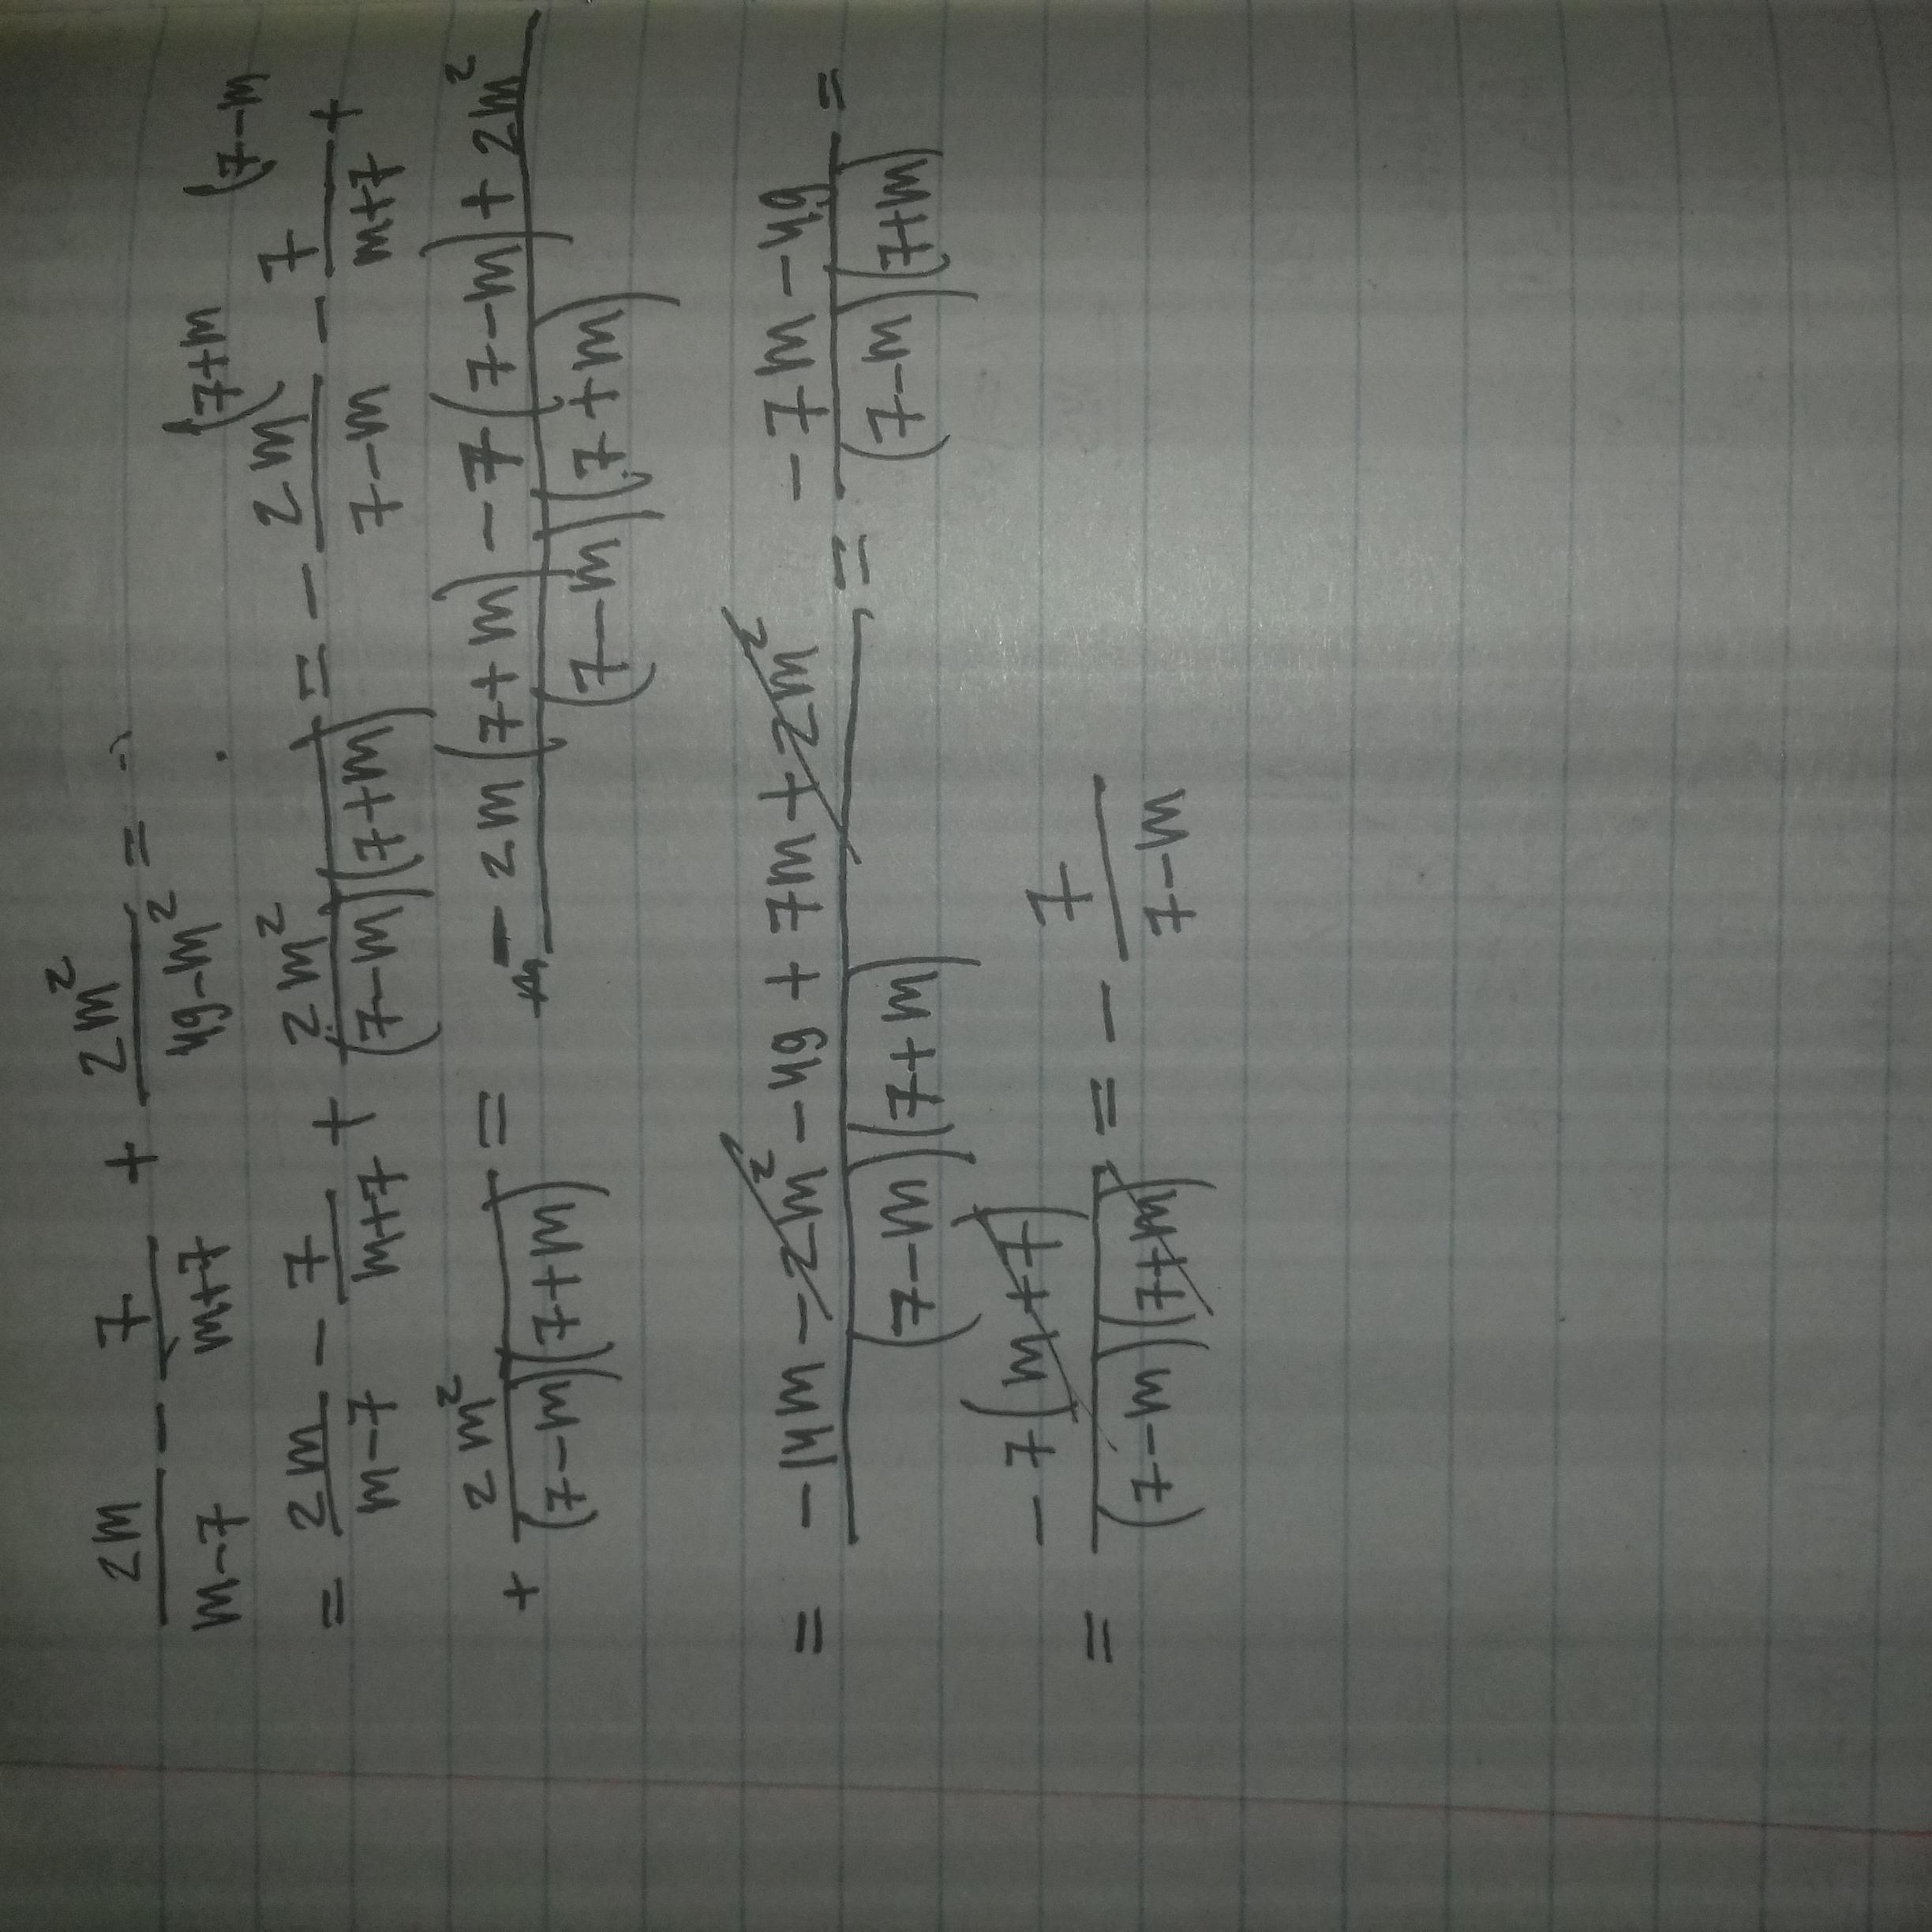 2m/(m-7) - 7/(m+7) + 2m²/(49-m²) =
= 2m/(m-7) - 7/(m+7) + 2m²/((7-m)(7+m)) = - 2m/(7-m) (7+m - 7/(7+m) (7-m +
+ 2m²/((7-m)(7+m)) = (-2m(7+m) - 7(7-m) + 2m²)/((7-m)(7+m))
= (-14m - 2m² - 49 + 7m + 2m²)/((7-m)(7+m)) = (-7m - 49)/((7-m)(7+m)) =
= -7(m+7)/((7-m)(7+m)) = - 7/(7-m)